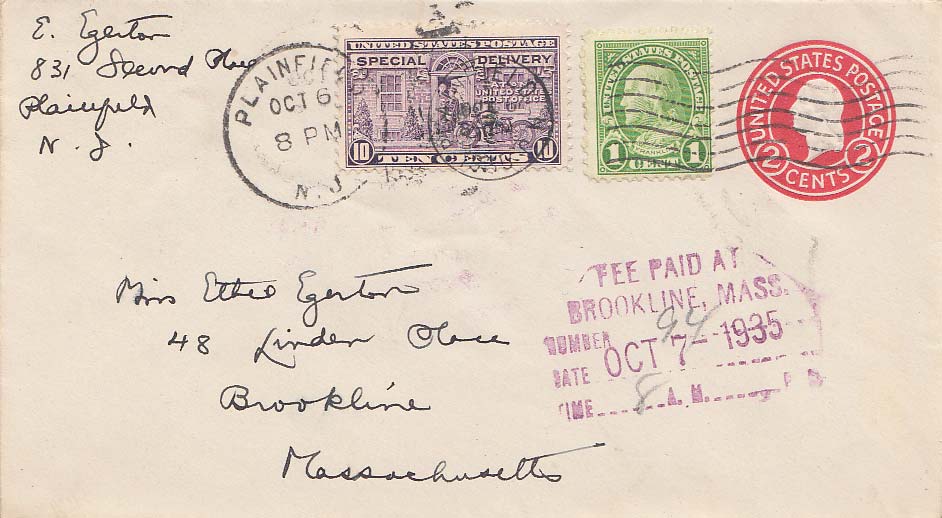 E. Egerton
831 Second Place
Plainfield
N. J.
PLAINFIELD
OCT 6
8 PM
N. J.
UNITED STATES POSTAGE
SPECIAL DELIVERY
AT ANY
UNITED STATES
POST OFFICE
10 TEN CENTS 10
UNITED STATES POSTAGE
FRANKLIN
1 CENT 1
UNITED STATES POSTAGE
2 CENTS 2
FEE PAID AT
BROOKLINE, MASS.
NUMBER 94
DATE OCT 7- 1935
TIME 8 A. M. P. M.
Miss Ethel Egerton
48 Linden Place
Brookline
Massachusetts